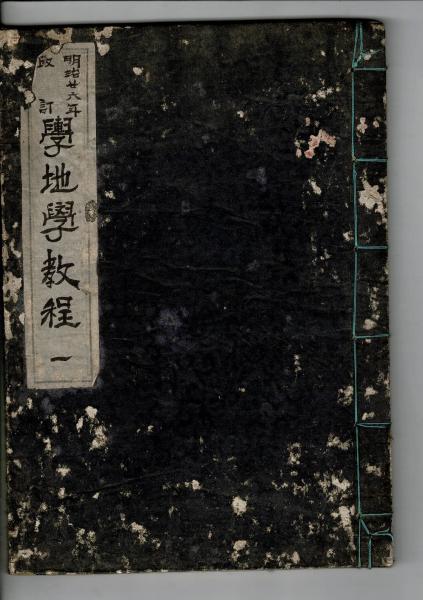 明治廿六年
改訂
輿地學教程 一